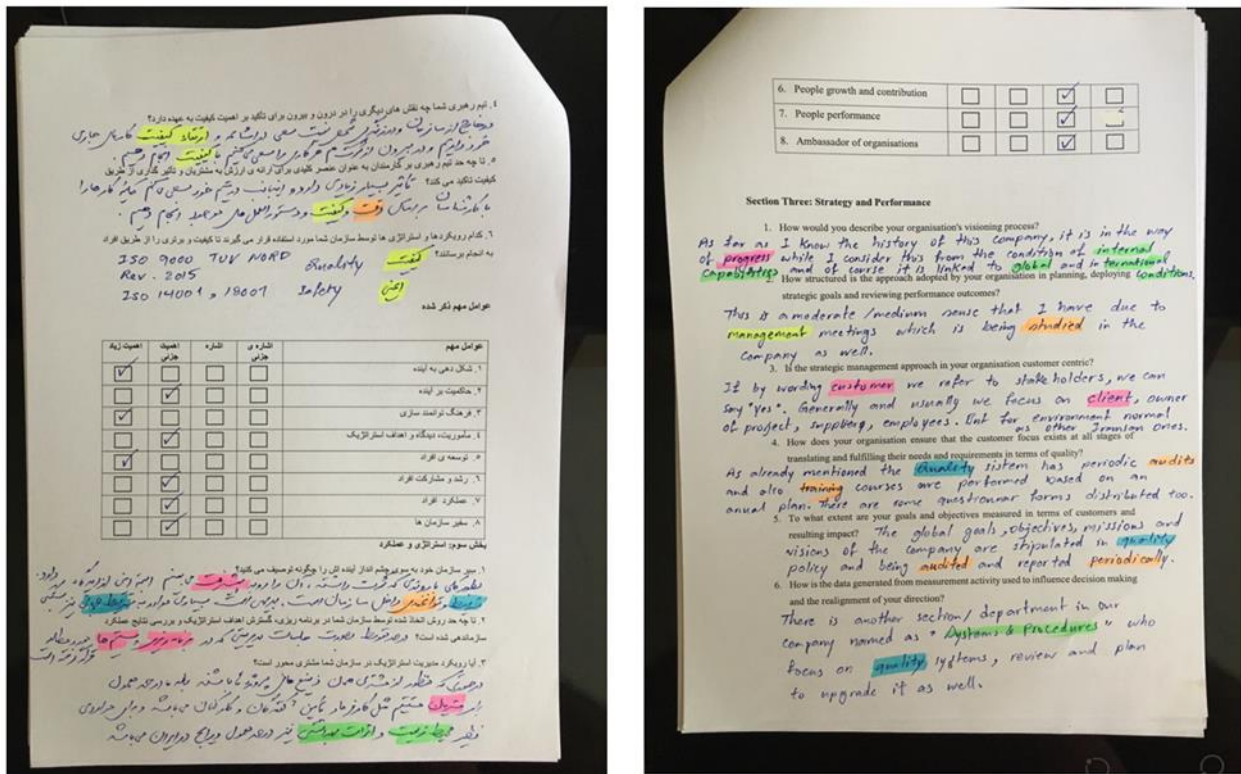 ۴. تیم رهبری شما چه نقش های دیگری را در درون و بیرون برای تأکید بر اهمیت کیفیت به عهده دارد؟
ارتقاء کیفیت کارهای جاری
خود داریم و در بیرون
کیفیت انجام دهیم.
۵. تا چه حد تیم رهبری بر کارمندان به عنوان عنصر کلیدی برای ارائه ی ارزش به مشتریان و تأثیر گذاری از طریق
کیفیت تاکید می کند؟ تأثیر بسیار زیادی دارد و اینجانب در تیم خود سعی می کنم کلیه کارها را
با کارشناسان دقت و کیفیت و دستورالعمل های مربوطه انجام دهیم.
۶. کدام رویکردها و استراتژی ها توسط سازمان شما مورد استفاده قرار می گیرند تا کیفیت و برتری را از طریق افراد
به انجام برسانند؟
ISO 9000 TUV NORD Quality کیفیت
Rev. 2015
ISO 14001 و 18001 Safety ایمنی
عوامل مهم ذکر شده
عوامل مهم اشاره ی جزئی اشاره اهمیت جزئی اهمیت زیاد
۱. شکل دهی به آینده
۲. حاکمیت بر آینده
۳. فرهنگ توانمند سازی
۴. مأموریت، دیدگاه و اهداف استراتژیک
۵. توسعه ی افراد
۶. رشد و مشارکت افراد
۷. عملکرد افراد
۸. سفیر سازمان ها
بخش سوم: استراتژی و عملکرد
۱. سیر سازمان خود به سوی چشم انداز آینده اش را چگونه توصیف می کنید؟
پیشرفت می بینم
۲. تا چه حد روش اتخاذ شده توسط سازمان شما در برنامه ریزی، گسترش اهداف استراتژیک و بررسی نتایج عملکرد
سازماندهی شده است؟ در حد متوسط بصورت جلسات مدیریتی که در برنامه ریزی و سیستم ها مورد مطالعه
قرار گرفته است
۳. آیا رویکرد مدیریت استراتژیک در سازمان شما مشتری محور است؟
در صورتی که منظور از مشتری همان ذینفع های پروژه ها باشند بله در حد معمول
برای مشتریان مثل کارفرما، تأمین کنندگان و کارکنان می باشد
محیط زیست و اثرات نیز در حد معمول و رایج در ایران می باشد
6. People growth and contribution
7. People performance
8. Ambassador of organisations
Section Three: Strategy and Performance
1. How would you describe your organisation's visioning process?
As far as I know the history of this company, it is in the way
of progress while I consider this from the condition of internal
capabilities and of course it is linked to global and international
conditions.
2. How structured is the approach adopted by your organisation in planning, deploying
strategic goals and reviewing performance outcomes?
This is a moderate/medium sense that I have due to
management meetings which is being studied in the
company as well.
3. Is the strategic management approach in your organisation customer centric?
If by wording customer we refer to stake holders, we can
say "Yes". Generally and usually we focus on client, owner
of project, suppliers, employees. But for environment normal
as other Iranian ones.
4. How does your organisation ensure that the customer focus exists at all stages of
translating and fulfilling their needs and requirements in terms of quality?
As already mentioned the Quality sistem has periodic audits
and also training courses are performed based on an
anual plan. there are some questionnar forms distributed too.
5. To what extent are your goals and objectives measured in terms of customers and
resulting impact? The global goals, objectives, missions and
visions of the company are stipulated in quality
policy and being audited and reported periodically.
6. How is the data generated from measurement activity used to influence decision making
and the realignment of your direction?
There is another section/department in our
company named as "Systems & Procedures" who
focus on quality systems, review and plan
to upgrade it as well.